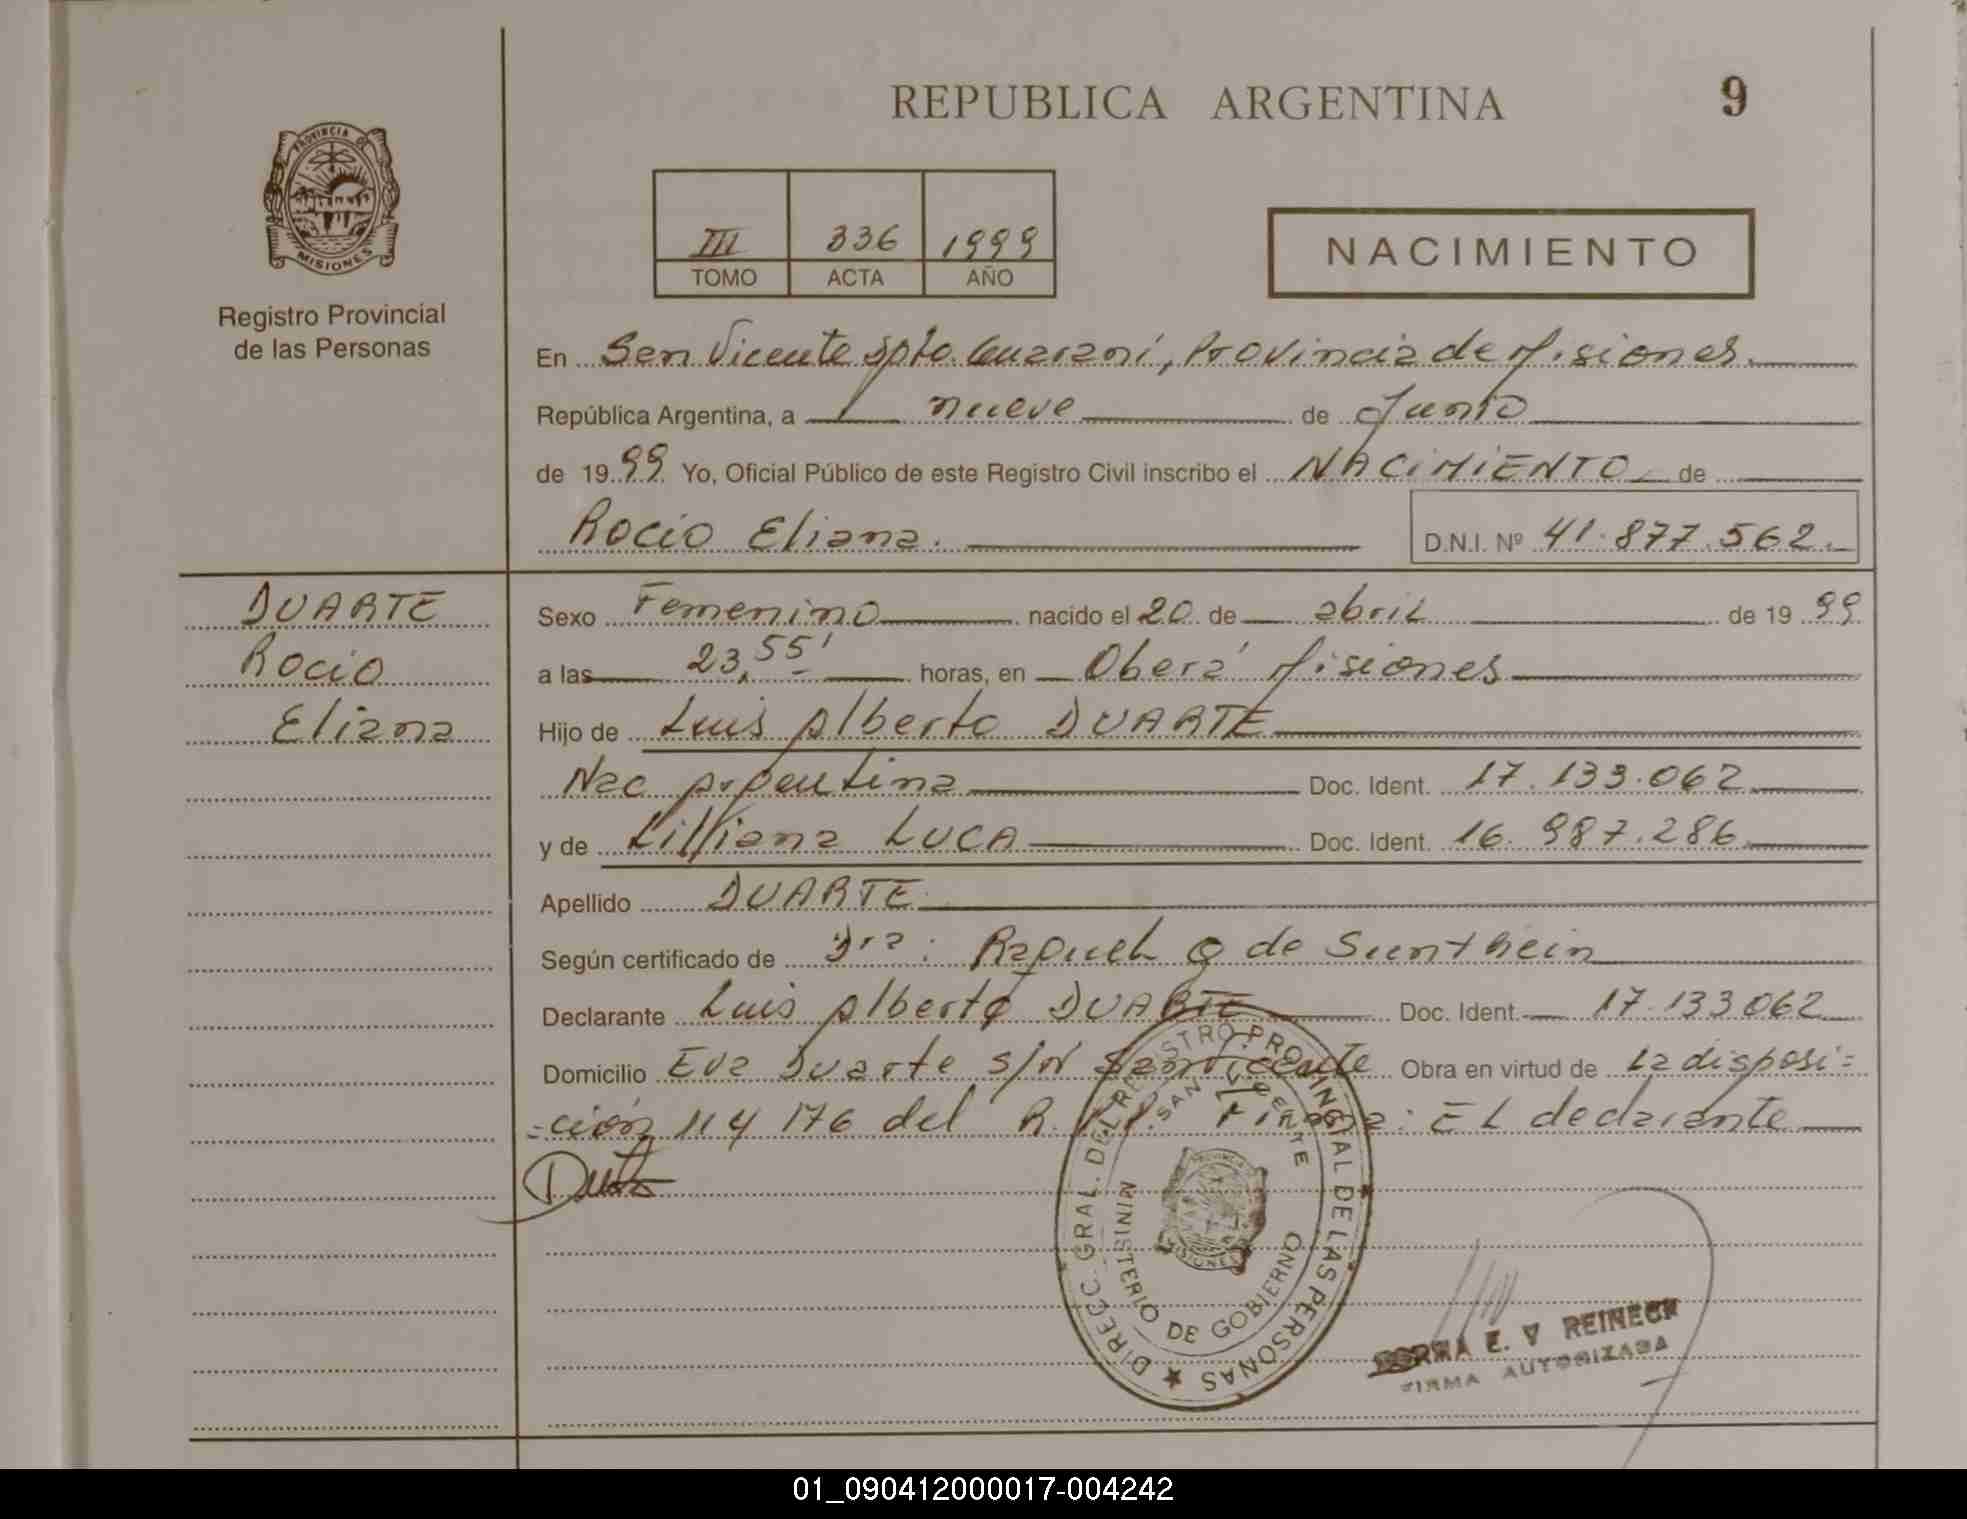 REPUBLICA ARGENTINA
9
PROVINCIA DE
MISIONES
Registro Provincial
de las Personas
III 336 1999
TOMO ACTA AÑO
NACIMIENTO
En San Vicente Dpto. Guaraní, Provincia de Misiones.
República Argentina, a nueve de Junio
de 1999 Yo, Oficial Público de este Registro Civil inscribo el NACIMIENTO de
Rocio Eliana.
D.N.I. Nº 41.877.562.
DUARTE
Rocio
Eliana
Sexo Femenino nacido el 20 de abril de 1999
a las 23,55' horas, en Oberá Misiones
Hijo de Luis Alberto DUARTE
Nac Argentina Doc. Ident. 17.133.062
y de Lilliana LUCA Doc. Ident. 16.987.286
Apellido DUARTE
Según certificado de Dra: Raquel G de Sunthein
Declarante Luis Alberto DUARTE Doc. Ident. 17.133062
Domicilio Eva Duarte s/n San Vicente Obra en virtud de la disposi=
=ción 114 176 del R.P.P. Firma: EL declarante
DIRECC. GRAL. DEL REGISTRO PROVINCIAL DE LAS PERSONAS
SAN VICENTE
MINISTERIO DE GOBIERNO
PROVINCIA
MISIONES
E. V REINECK
FIRMA AUTORIZADA
01_090412000017-004242